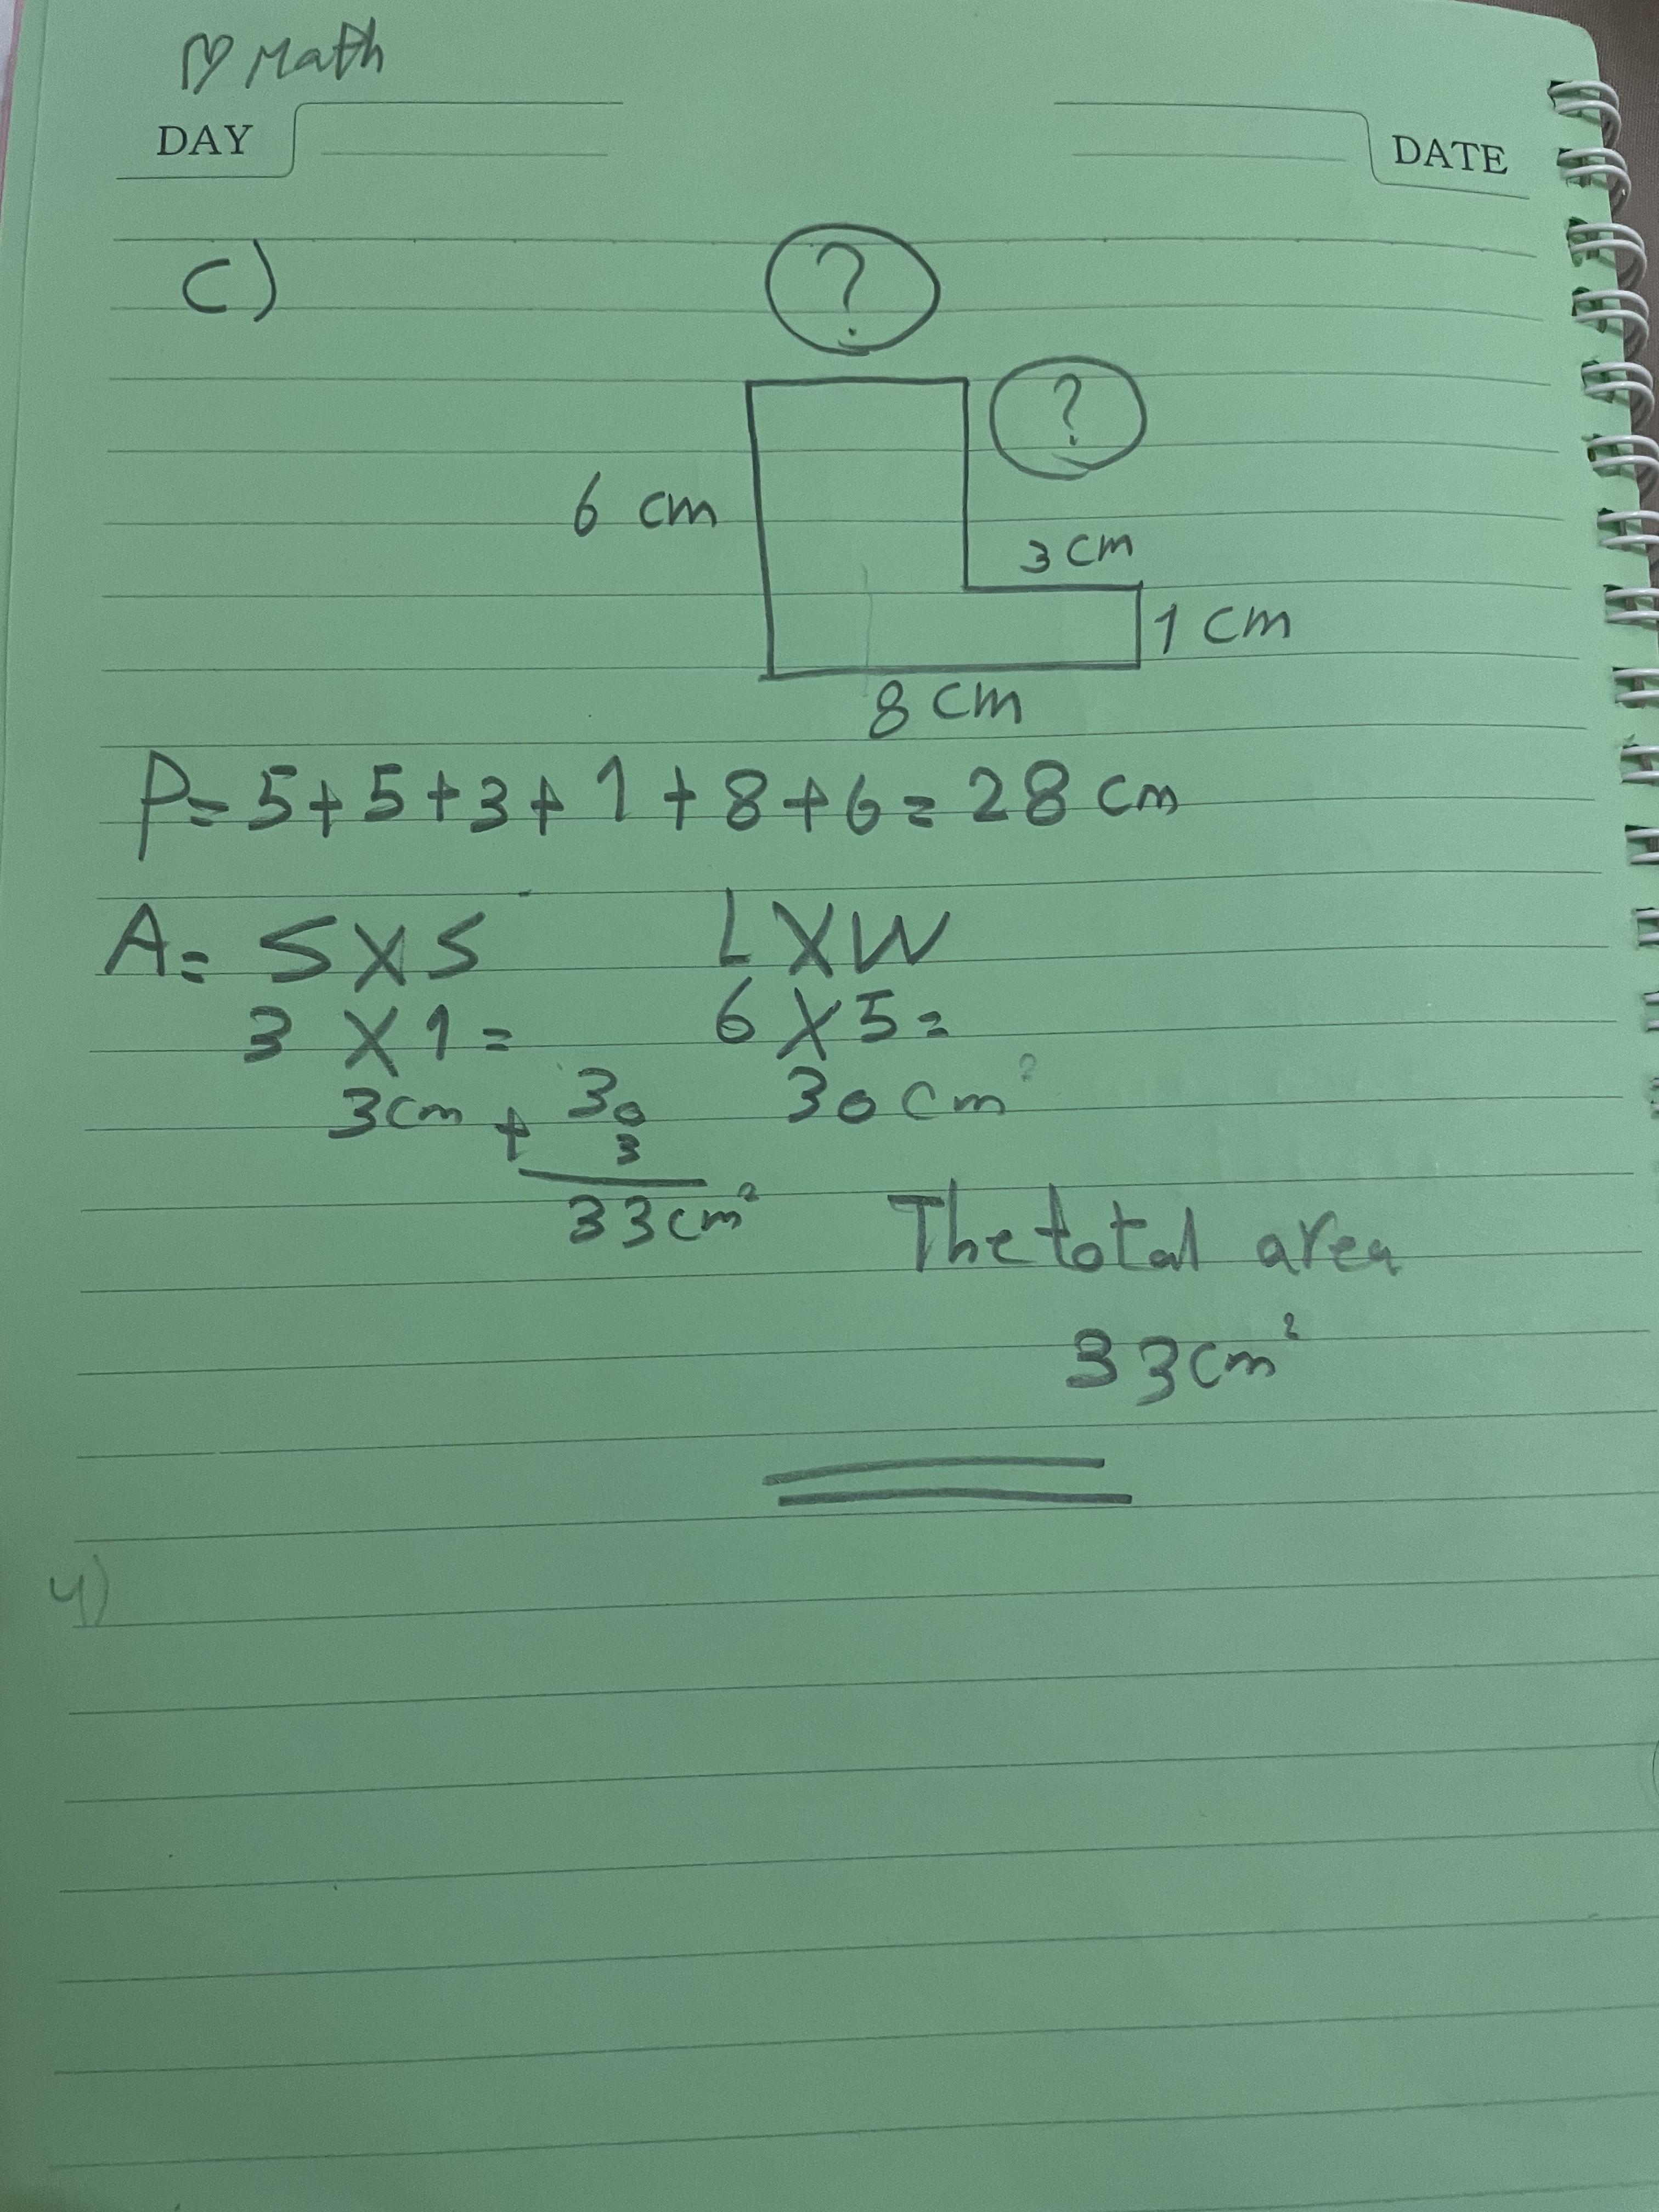 ♡ Math
DAY
DATE
C)
?
?
6 cm
3 cm
1 cm
8 cm
P= 5+5+3+1+8+6= 28 cm
A= S X S L X W
3 X 1 = 6 X 5 =
3cm + 30 30 cm²
3
33cm²
The total area
33cm²
4)